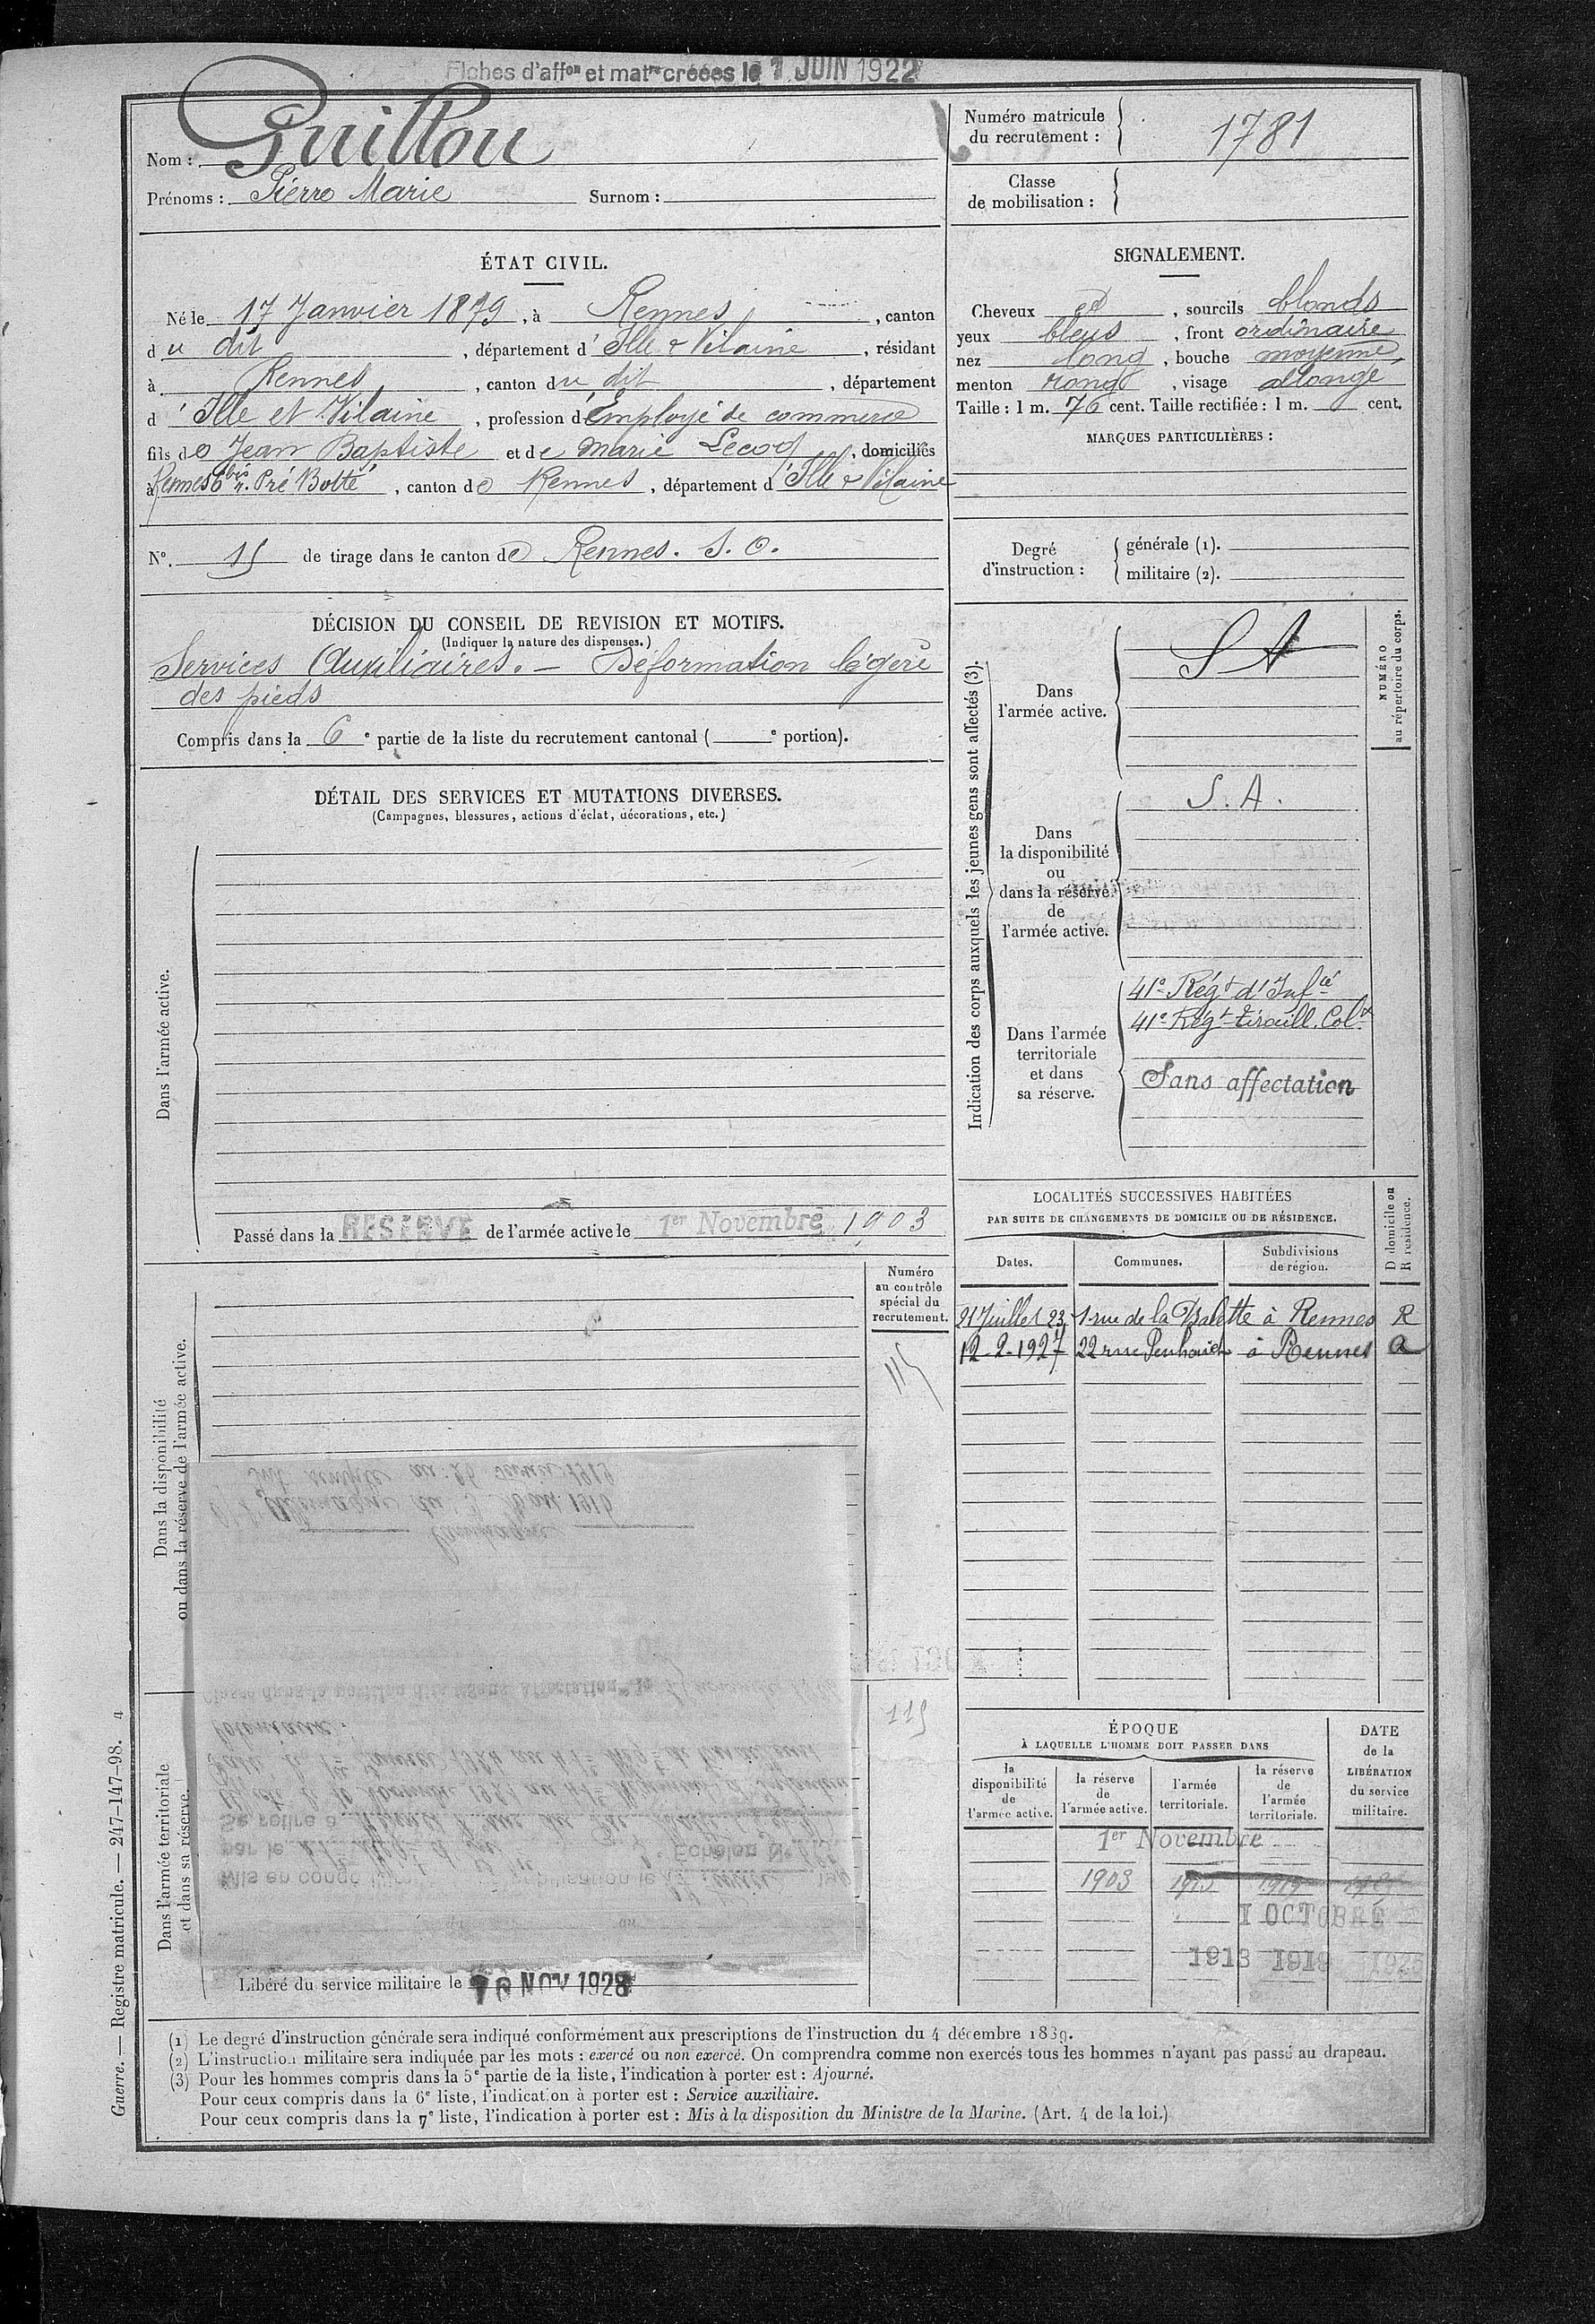 Fiches d'affon et matre créées le 1 JUIN 1922
Nom : Guillou
Prénoms : Pierre Marie Surnom :
Numéro matricule du recrutement : 1781
Classe de mobilisation :
ÉTAT CIVIL.
Né le 17 Janvier 1879, à Rennes, canton
du dit, département d'Ille & Vilaine, résidant
à Rennes, canton du dit, département
d'Ille et Vilaine, profession d'Employé de commerce
fils de Jean Baptiste et de Marie Lecoq, domiciliés
à Rennes 6 bis r. Pré Botté, canton de Rennes, département d'Ille & Vilaine
N°. 15 de tirage dans le canton de Rennes. S. O.
SIGNALEMENT.
Cheveux et, sourcils blonds
yeux bleus, front ordinaire
nez long, bouche moyenne,
menton rond, visage allongé
Taille : 1 m. 76 cent. Taille rectifiée : 1 m. cent.
MARQUES PARTICULIÈRES :
Degré d'instruction : générale (1).
militaire (2).
DÉCISION DU CONSEIL DE REVISION ET MOTIFS.
(Indiquer la nature des dispenses.)
Services Auxiliaires. — Déformation légère
des pieds
Compris dans la 6e partie de la liste du recrutement cantonal ( e portion).
DÉTAIL DES SERVICES ET MUTATIONS DIVERSES.
(Campagnes, blessures, actions d'éclat, décorations, etc.)
Dans l'armée active.
Passé dans la RÉSERVE de l'armée active le 1er Novembre 1903
Indication des corps auxquels les jeunes gens sont affectés (3).
NUMÉRO au répertoire du corps.
Dans l'armée active.
S A
Dans la disponibilité ou dans la réserve de l'armée active.
S. A.
Dans l'armée territoriale et dans sa réserve.
41e Régt d'Infie
41e Régt tiraill. Colx
Sans affectation
LOCALITÉS SUCCESSIVES HABITÉES
PAR SUITE DE CHANGEMENTS DE DOMICILE OU DE RÉSIDENCE.
D domicile ou R résidence.
Dates. Communes. Subdivisions de région.
21 Juillet 23 1 rue de la Palette à Rennes R
12-2-1927 22 rue Penhoët à Rennes
Dans la disponibilité ou dans la réserve de l'armée active.
Numéro au contrôle spécial du recrutement.
115
Dans l'armée territoriale et dans sa réserve.
115
Libéré du service militaire le 10 NOV 1928
ÉPOQUE
À LAQUELLE L'HOMME DOIT PASSER DANS
DATE de la LIBÉRATION du service militaire.
la disponibilité de l'armée active.
la réserve de l'armée active.
l'armée territoriale.
la réserve de l'armée territoriale.
1er Novembre
1903 1919
1 OCTOBRE
1913 1919 1925
(1) Le degré d'instruction générale sera indiqué conformément aux prescriptions de l'instruction du 4 décembre 1889.
(2) L'instruction militaire sera indiquée par les mots : exercé ou non exercé. On comprendra comme non exercés tous les hommes n'ayant pas passé au drapeau.
(3) Pour les hommes compris dans la 5e partie de la liste, l'indication à porter est : Ajourné.
Pour ceux compris dans la 6e liste, l'indication à porter est : Service auxiliaire.
Pour ceux compris dans la 7e liste, l'indication à porter est : Mis à la disposition du Ministre de la Marine. (Art. 4 de la loi.)
Guerre. — Registre matricule. — 247-147-98. 4